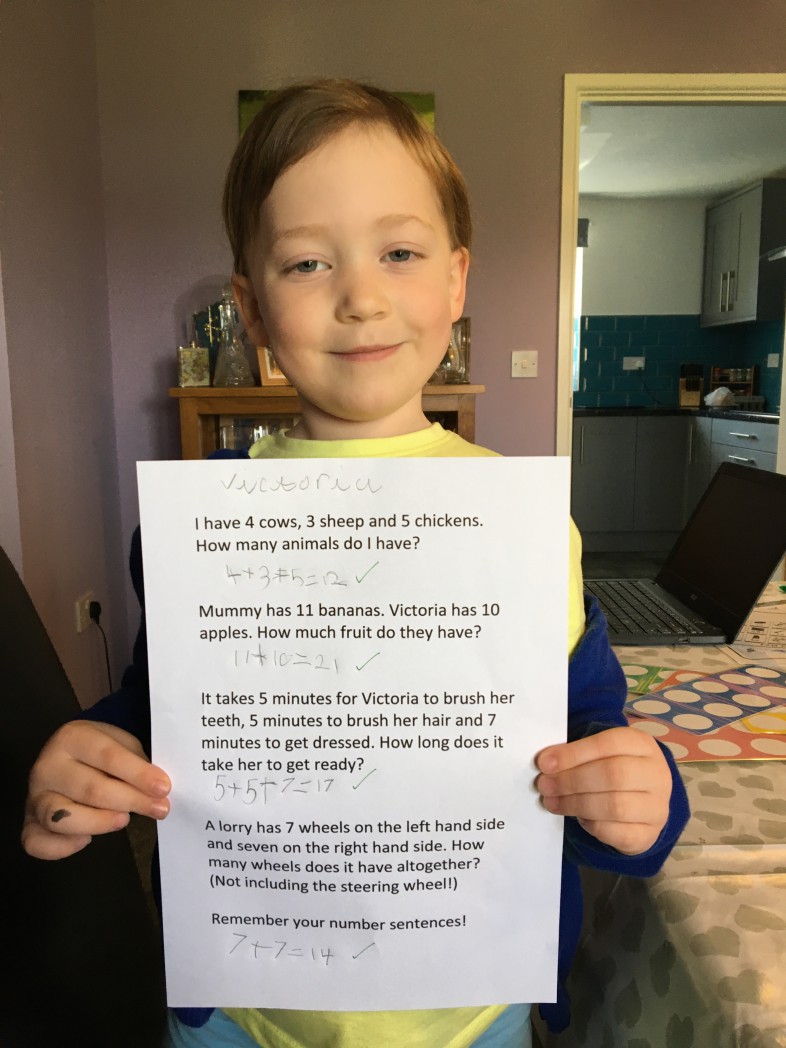 victoria
I have 4 cows, 3 sheep and 5 chickens.
How many animals do I have?
4+3+5=12 ✓
Mummy has 11 bananas. Victoria has 10
apples. How much fruit do they have?
11+10=21 ✓
It takes 5 minutes for Victoria to brush her
teeth, 5 minutes to brush her hair and 7
minutes to get dressed. How long does it
take her to get ready?
5+5+7=17 ✓
A lorry has 7 wheels on the left hand side
and seven on the right hand side. How
many wheels does it have altogether?
(Not including the steering wheel!)
Remember your number sentences!
7+7=14 ✓